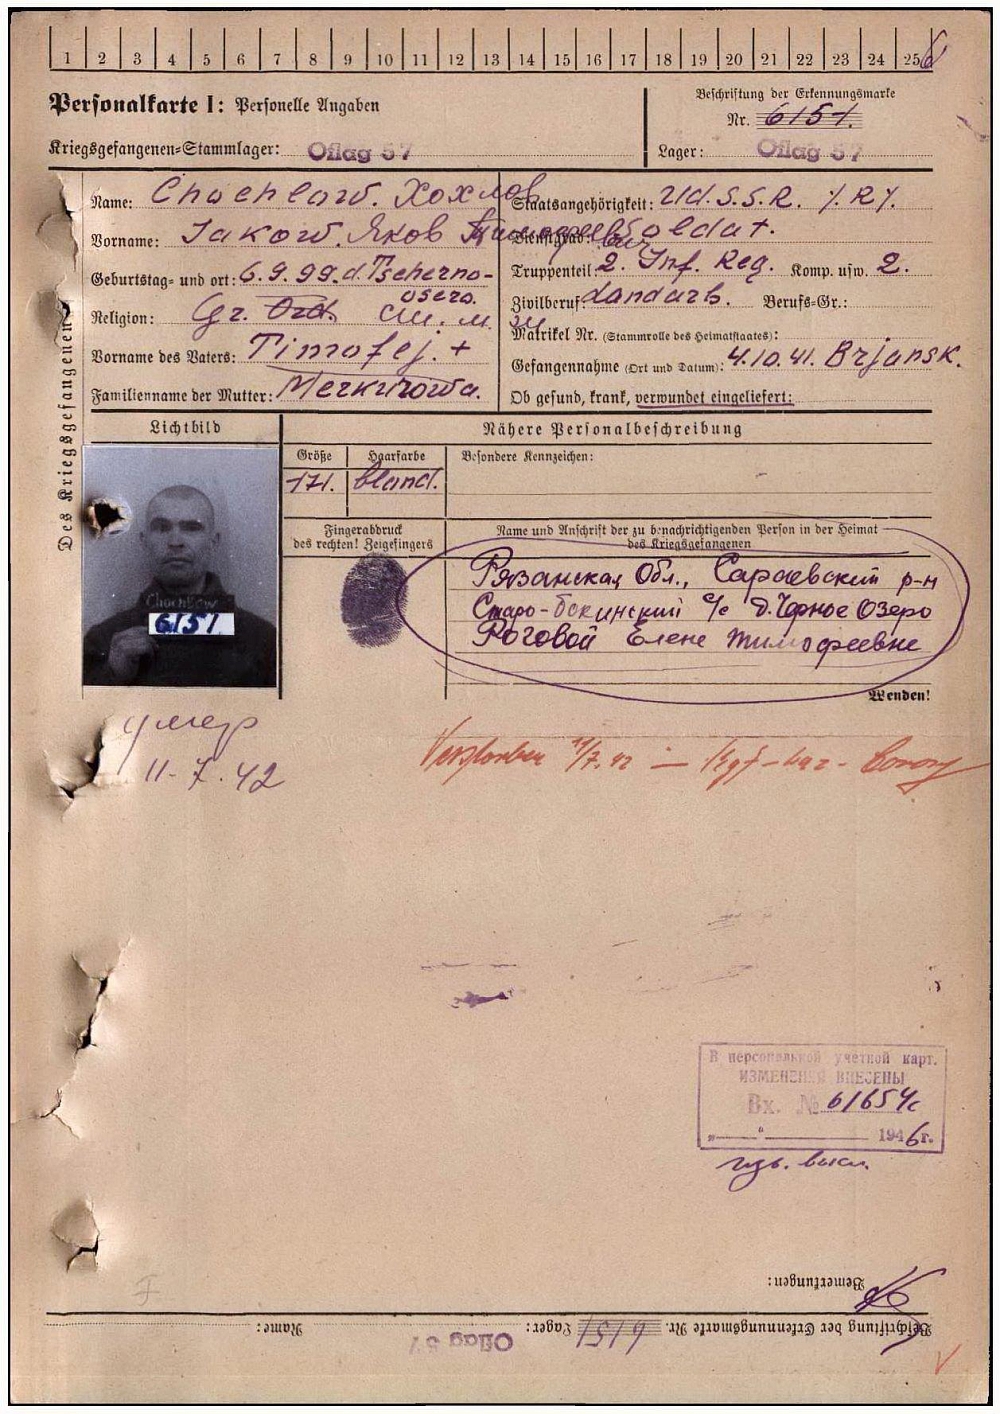 1 2 3 4 5 6 7 8 9 10 11 12 13 14 15 16 17 18 19 20 21 22 23 24 25
Personalkarte I: Personelle Angaben
Beschriftung der Erkennungsmarke
Nr. 6151.
Kriegsgefangenen-Stammlager: Oflag 57
Lager: Oflag 57
Des Kriegsgefangenen
Name: Chochlow. Хохлов
Staatsangehörigkeit: UdSSR.
Vorname: Jakow. Яков Тимофеевич
Dienstgrad: Soldat.
Geburtstag- und ort: 6.9.99. d. Tscherno-
osero.
Truppenteil 2. Inf. Reg. Komp. usw. 2.
Religion: Gr. Ord.
Zivilberuf: Landarb. Berufs-Gr.:
Matrikel Nr. (Stammrolle des Heimatstaates):
Vorname des Vaters: Timofej. +
Gefangennahme (Ort und Datum): 4.10.41. Brjansk.
Familienname der Mutter: Merkurowa.
Ob gesund, krank, verwundet eingeliefert:
Lichtbild
Nähere Personalbeschreibung
Größe Haarfarbe Besondere Kennzeichen:
171. bland.
Fingerabdruck
des rechten! Zeigefingers
Name und Anschrift der zu benachrichtigenden Person in der Heimat
des Kriegsgefangenen
Рязанская Обл., Сараевский р-н
Старо-Бокинский с/с д. Черное Озеро
Роговой Елене Тимофеевне
Chochlow
6151
Wenden!
умер
11-7.42
Verstorben 11/7.42 –
В персональной учетной карт.
ИЗМЕНЕНИЯ ВНЕСЕНЫ
Вх. № 61654с
„ “ 1946г.
Bemerkungen:
Beschriftung der Erkennungsmarke Nr. 6151 Lager: Oflag 57 Name: